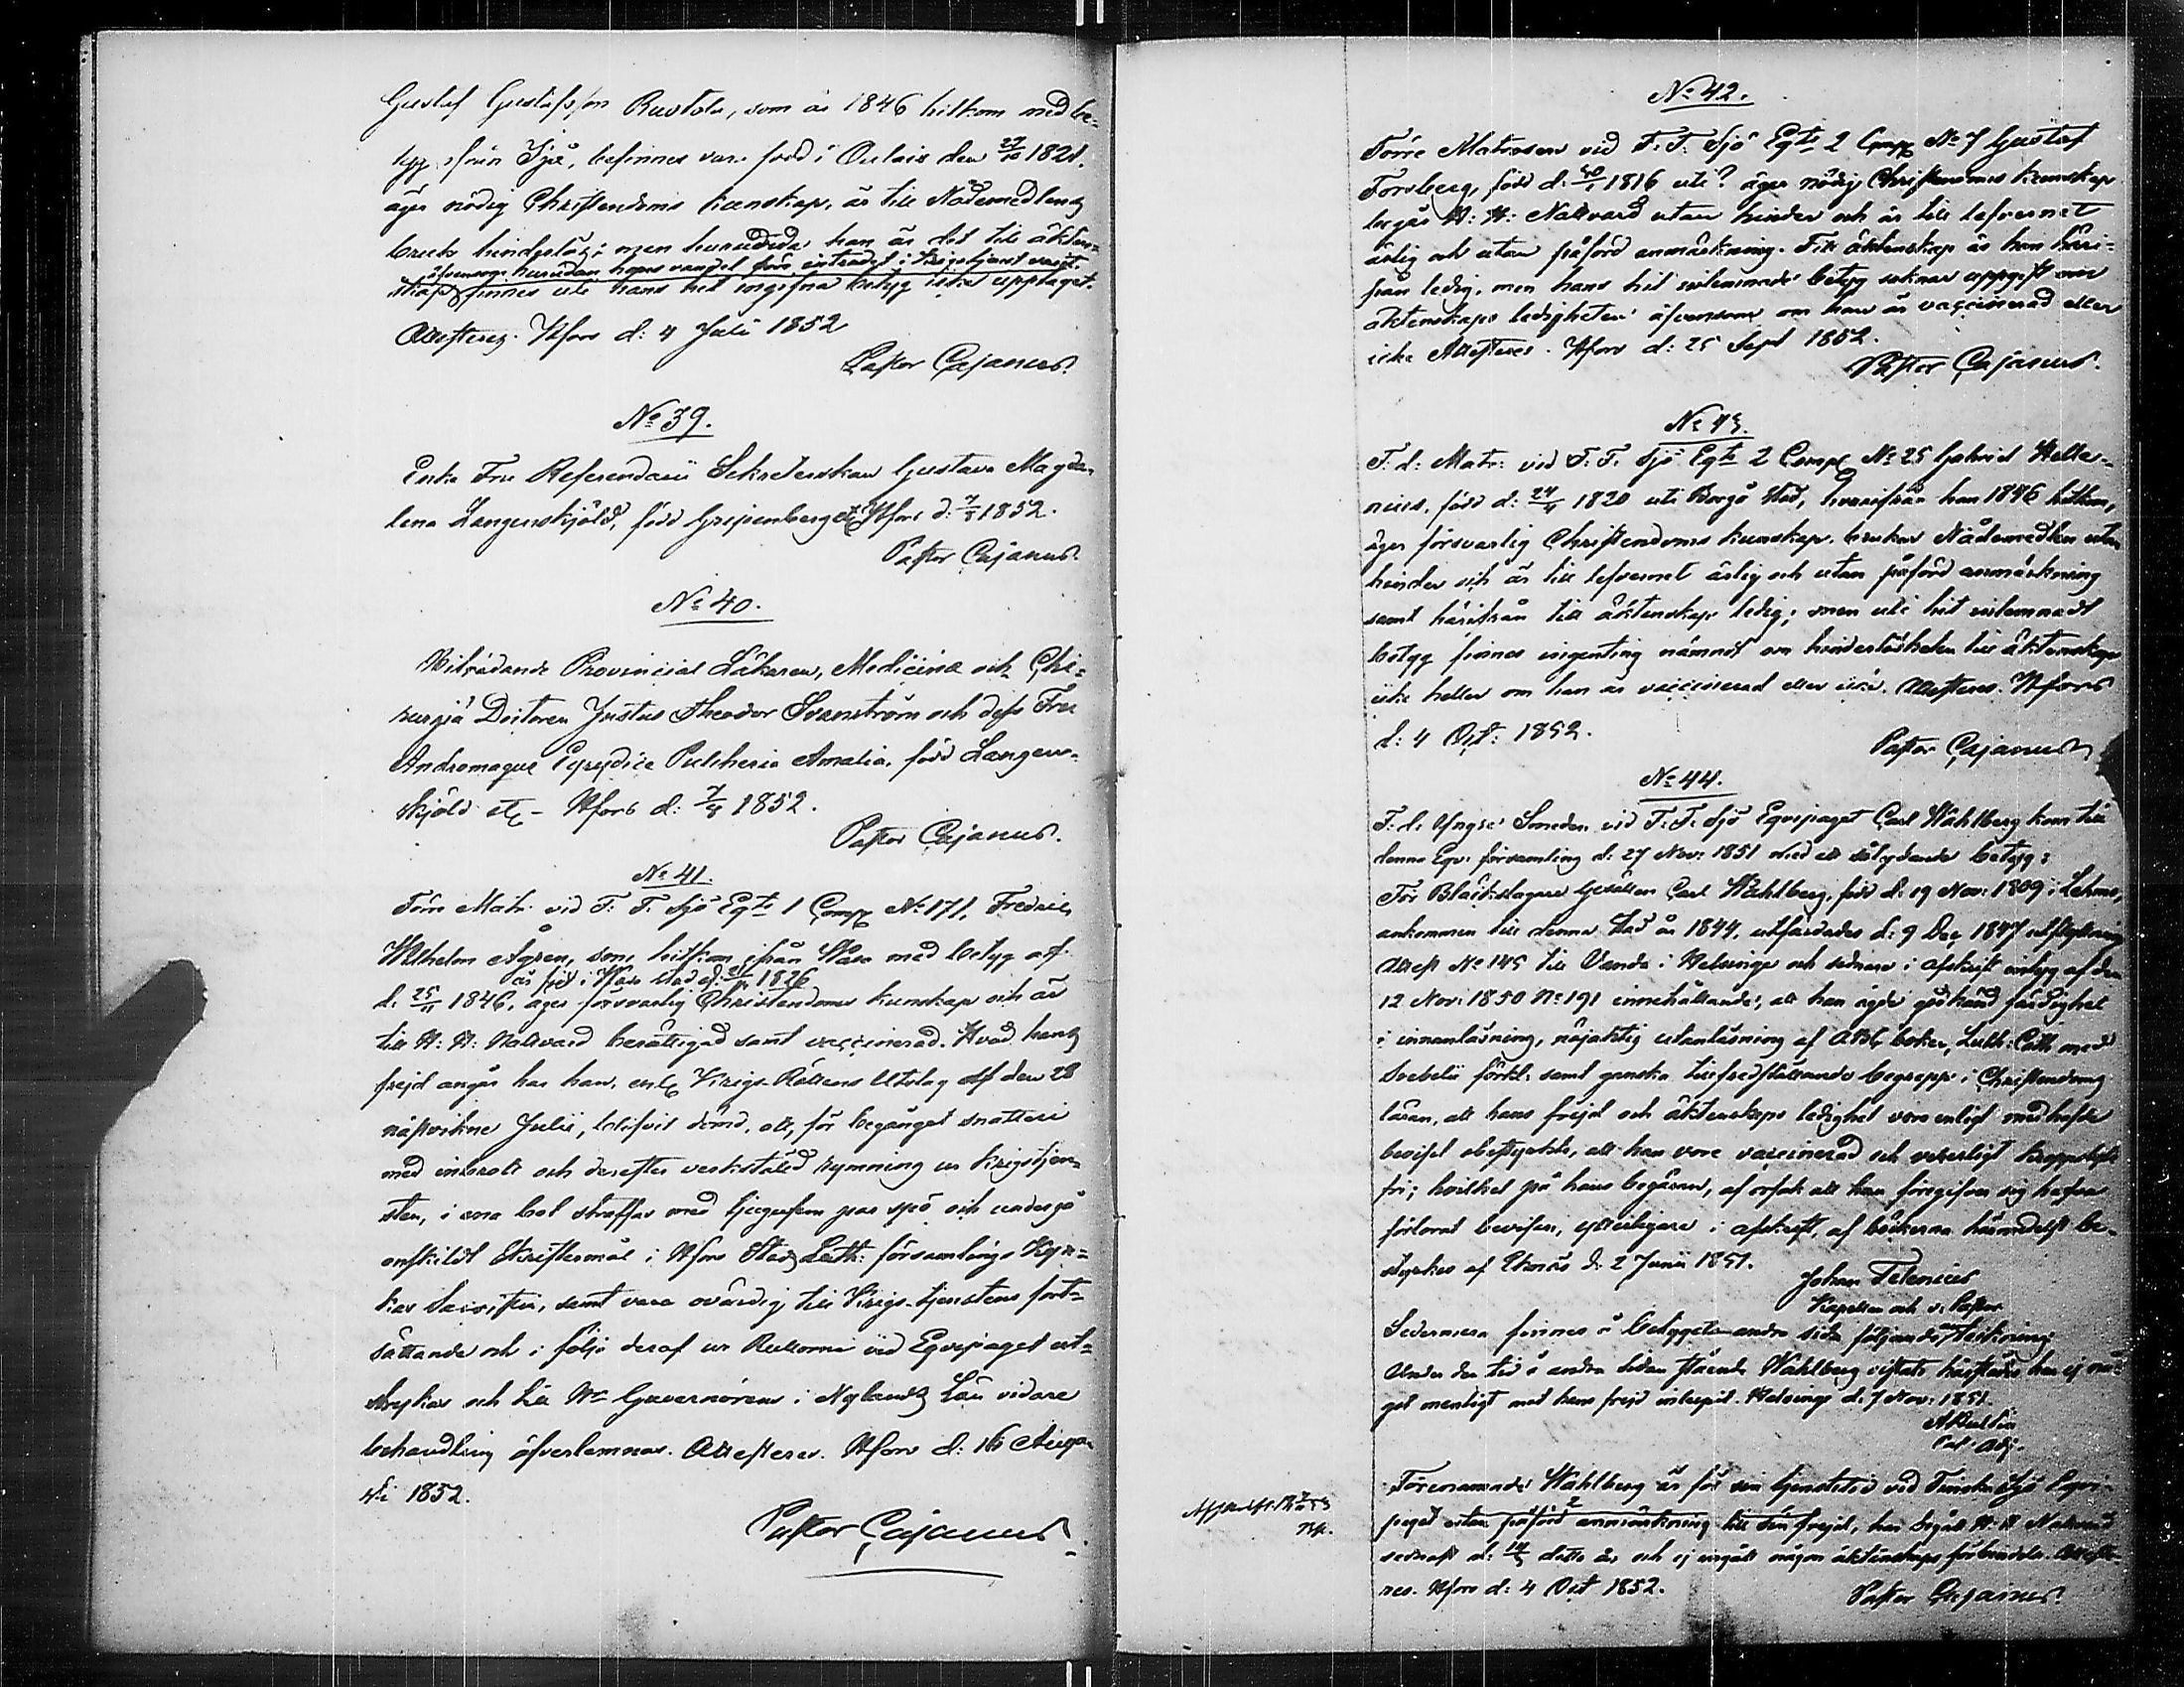 Gustaf Gustafsson Rustola, som år 1846 hitkom med be-
tyg ifrån Ijå, befinnes vara född i Oulais den 27/10 1821.
äger nödig Christendoms kunskap, är till Nådemedlens
bruk hinderslös; men huruvida han är det till äkten-
äfvensom hurudan hans vandel före inträdet i krigstjenst varit
skap, finnes uti hans hit ingifna betyg icke upptaget.
Attesteras. Hfors d: 4 Julii 1852
Pastor Cajanus.
No 39.
Enke Fru Referendarii Sekreterskan Gustava Magda-
lena Langenskjöld, född Gripenberg etc Hfors d: 7/8 1852.
Pastor Cajanus.
No 40.
Biträdande Provincial Läkaren, Medicinæ och Chi-
rurgiæ Doctoren Justus Theodor Svanström och dess Fru
Andromaque Eyrydice Pulcheria Amalia, född Langen-
skjöld etc - Hfors d: 7/8 1852.
Pastor Cajanus.
No 41.
Förre Matr. vid F. F. Sjö Eqts 1 Comp No 171, Fredric
Wilhelm Ågren, som hitkom ifrån Wasa med betyg af
är född i Wasa stad d. 1826
d. 25/11 1846, äger försvarlig Christendoms kunskap och är
till H: H: Nattvard berättigad samt vaccinerad. Hvad hans
frejd angår har han, enl. Krigs-Rättens Utslag af den 28
nästvikne Julii, blifvit dömd, att, för begånget snatteri
med inbrott och derefter verkstäld rymning ur krigstjen-
sten, i ena bot straffas med tjugufem par spö och undergå
enskildt Skriftermål i Hfors Stads Luth: församlings Kyr-
kas Sacristia, samt vara ovärdig till Krigs-tjenstens fort-
sättande och i följe deraf ur Rullorna vid Eqvipaget ut-
strykas och till Hr Guvernörens i Nylands Län vidare
behandling öfverlemnas. Attesteras. Hfors d: 16 Augu-
sti 1852.
Pastor Cajanus
No 42.
Förre Matrosen vid F. F. Sjö Eqts 2 Comp No 7 Gustaf
Forsberg, född d. 1816 uti? äger nödig Christendoms kunskap
begår H: H: Nattvard utan hinder och är till lefvernet
ärlig och utan påförd anmärkning. Till äktenskap är han häri-
från ledig, men hans hit inlemnade betyg saknar uppgift om
äktenskaps ledigheten äfvensom om han är vaccinerad eller
icke Attesteras. Hfors d: 25 Sept 1852.
Pastor Cajanus.
No 43.
F. d: Matr: vid F. F. Sjö Eqts 2 Comp No 25 Gabriel Helle-
nius, född d: 24/4 1820 uti Borgå Stad, hvarifrån han 1846 hitkom,
äger försvarlig Christendoms kunskap, brukar Nådemedlen utan
hinder och är till lefvernet ärlig och utan påförd anmärkning
samt härifrån till äktenskap ledig; men uti hit inlemnadt
betyg finnes ingenting nämndt om hinderslösheten till äktenskap
icke heller om han är vaccinerad eller icke. Attesteras. Hfors
d: 4 Oct: 1852.
Pastor Cajanus
No 44.
F. d. Yngre Smeden vid F. F. Sjö Eqvipaget Carl Wahlberg kom till
denna Eqv: församling d: 27 Nov: 1851 med ett sålydande betyg:
För Bläckslagare Gesällen Carl Wahlberg, född d: 19 Nov: 1809 i Lehmo,
ankommen till denna Stad år 1844, utfärdades d: 9 Dec 1847 utflyttnings
Attest No 145 till Vanda i Helsinge och sednare i afskrift intyg af den
12 Nov: 1850 No 191 innehållande, att han ägde godkänd färdighet
i innanläsning, nöjaktig utanläsning af ABC boken, Luth: Cath med
Svebelii förkl. samt ganska tillfredsställande begrepp i Christendoms
läran, att hans frejd och äktenskaps ledighet vore enligt medhafde
bevis obestyrkte, att han vore vaccinerad och veterligt kroppslyte
fri; hvilket på hans begäran, af orsak att han föregifver sig hafva
förlorat beviset, ytterligare i afskrift, af böckerna härmedelst be-
styrkes af Ekenäs d: 2 Junii 1851.
Johan Telenius
Kapellan och v. Pastor
Sedermera finnes å betygets andra sida följande anteckning
Under den tid å andra sidan stående Wahlberg vistats härstädes har ej nå-
got menligt mot hans frejd inlupit. Helsinge d: 7 Nov: 1851.
Adj.
Förenämnde Wahlberg är för sin tjenstetid vid Finska Sjö Eqvi-
paget utan påförd anmärkning till sin frejd, har begått H. H. Nattvard
sednast d: detta år och ej ingått någon äktenskaps förbindelse. Atteste-
ras. Hfors d: 4 Oct 1852.
Pastor Cajanus.